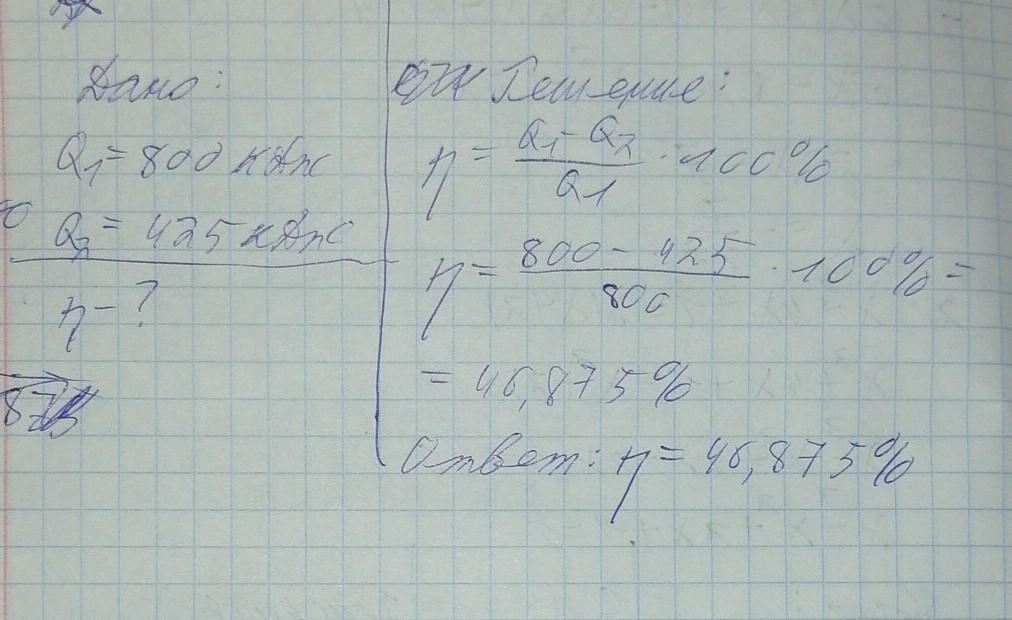 Дано:
Q1 = 800 кДж
Q2 = 425 кДж
η - ?
Решение:
η = (Q1 - Q2) / Q1 · 100%
η = (800 - 425) / 800 · 100% =
= 46,875%
Ответ: η = 46,875%